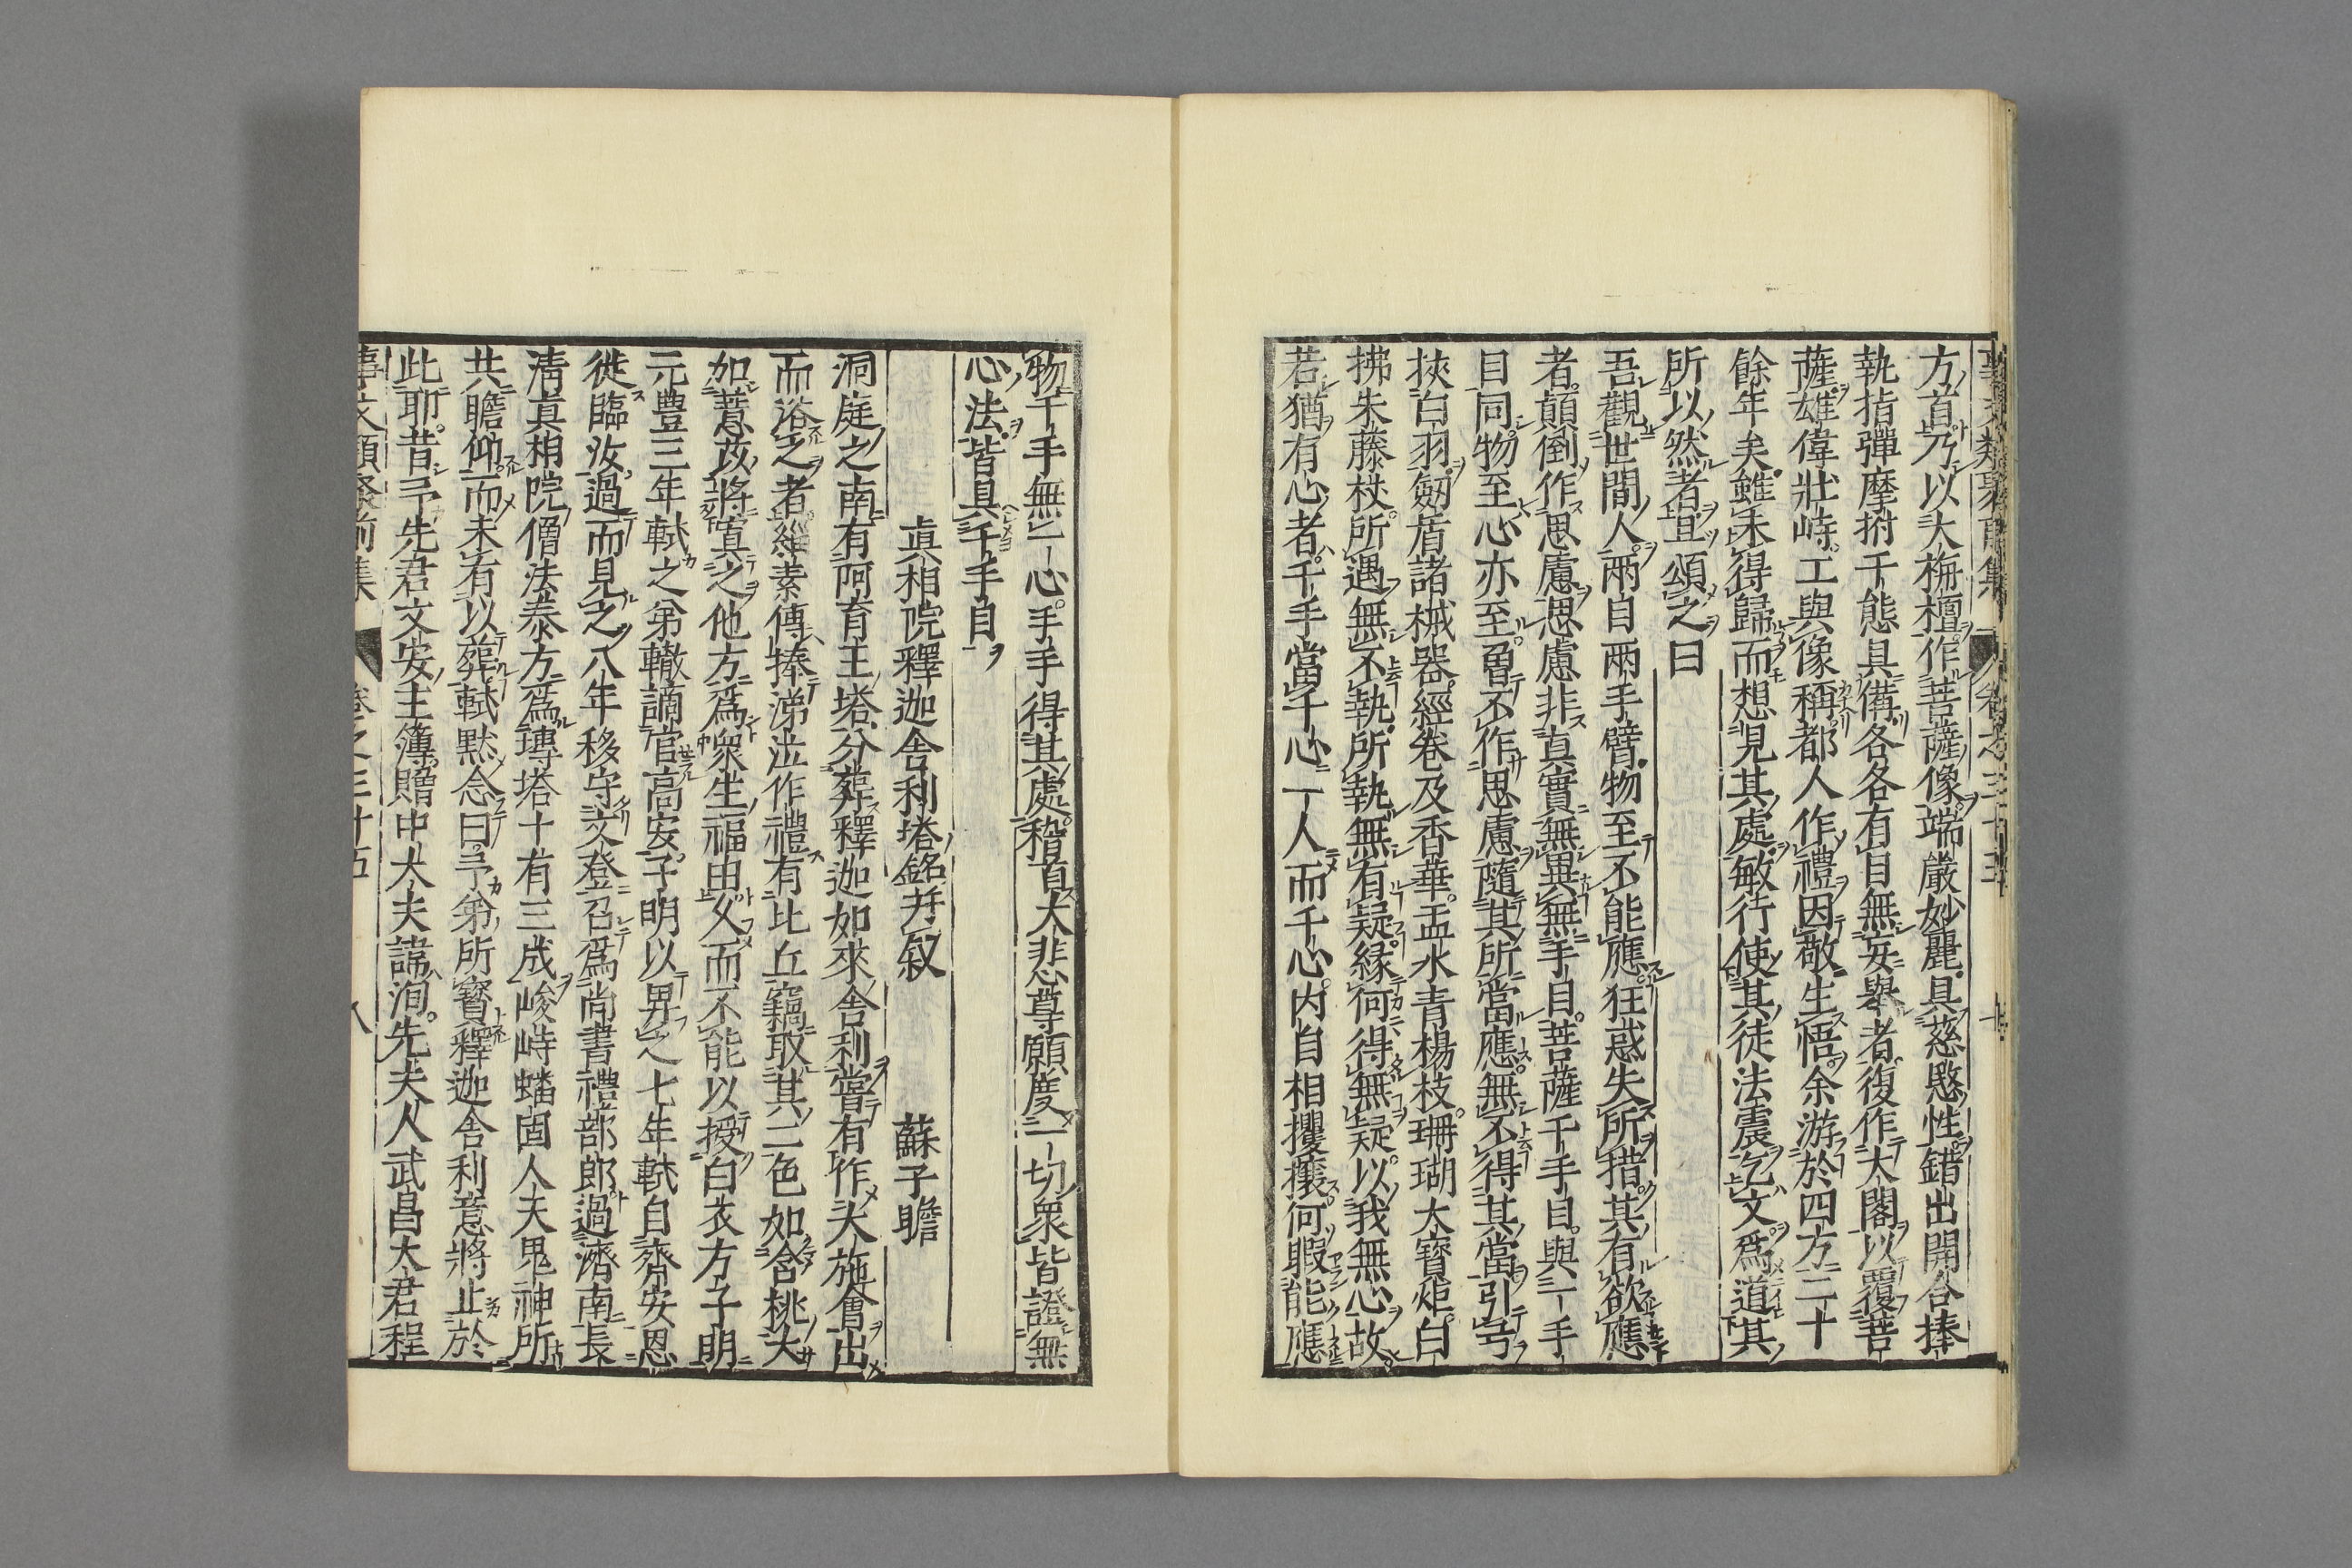 方首乃以大栴檀作菩薩像端嚴妙麗具慈愍性錯出開合捧
執指彈摩拊千態具備各各有目無妄舉者復作大閣以覆菩
薩雄偉壯峙工與像稱都人作禮因敬生悟余游於四方二十
餘年矣雖未得歸而想見其處敏行使其徒法震乞文為道其
所以然者且頌之曰
吾觀世間人兩目兩手臂物至不能應狂惑失所措其有欲應
者顛倒作思慮思慮非真實無異無手目菩薩千手目與一手
目同物至心亦至曾不作思慮隨其所當應無不得其當引弓
挾白羽劒盾諸械器經卷及香華盂水青楊枝珊瑚大寶炬白
拂朱藤杖所遇無不執所執無有疑緣何得無疑以我無心故
若猶有心者千手當千心一人而千心内自相攫攘何暇能應
物千手無一心手手得其處稽首大悲尊願度一切衆皆證無
心法皆具千手目
真相院釋迦舍利塔銘并叙 蘇子瞻
洞庭之南有阿育王塔分葬釋迦如來舍利嘗有作大施會出
而浴之者緇素傳捧涕泣作禮有比丘竊取其二色如含桃大
如薏苡將寘之他方為衆生福由久而不能以授白衣方子明
元豊三年軾之弟轍謫官高安子明以畀之七年軾自齊安恩
徙臨汝過而見之八年移守文登召為尚書禮部郎過濟南長
清真相院僧法泰方為塼塔十有三成峻峙蟠固人夫鬼神所
共瞻仰而未有以葬軾默念曰予弟所寶釋迦舍利意將止於
此耶昔予先君文安主簿贈中大夫諱洵先夫人武昌太君程
事文類聚前集 卷之三十五 八